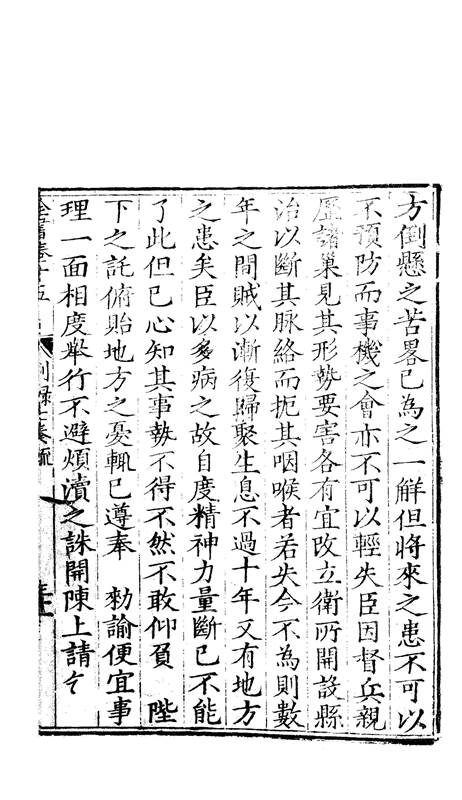 方倒懸之苦畧已為之一觧但將來之患不可以
不預防而事機之會亦不可以輕失臣因督兵親
歷諸巢見其形勢要害各有宜改立衛所開設縣
治以斷其脉絡而扼其咽喉者若失今不為則數
年之間賊以漸復歸聚生息不過十年又有地方
之患矣臣以多病之故自度精神力量斷已不能
了此但已心知其事勢不得不然不敢仰負 陛
下之託俯貽地方之憂輒已遵奉 勑諭便宜事
理一面相度舉行不避煩瀆之誅開陳上請乞
全書卷十五 別錄七奏疏